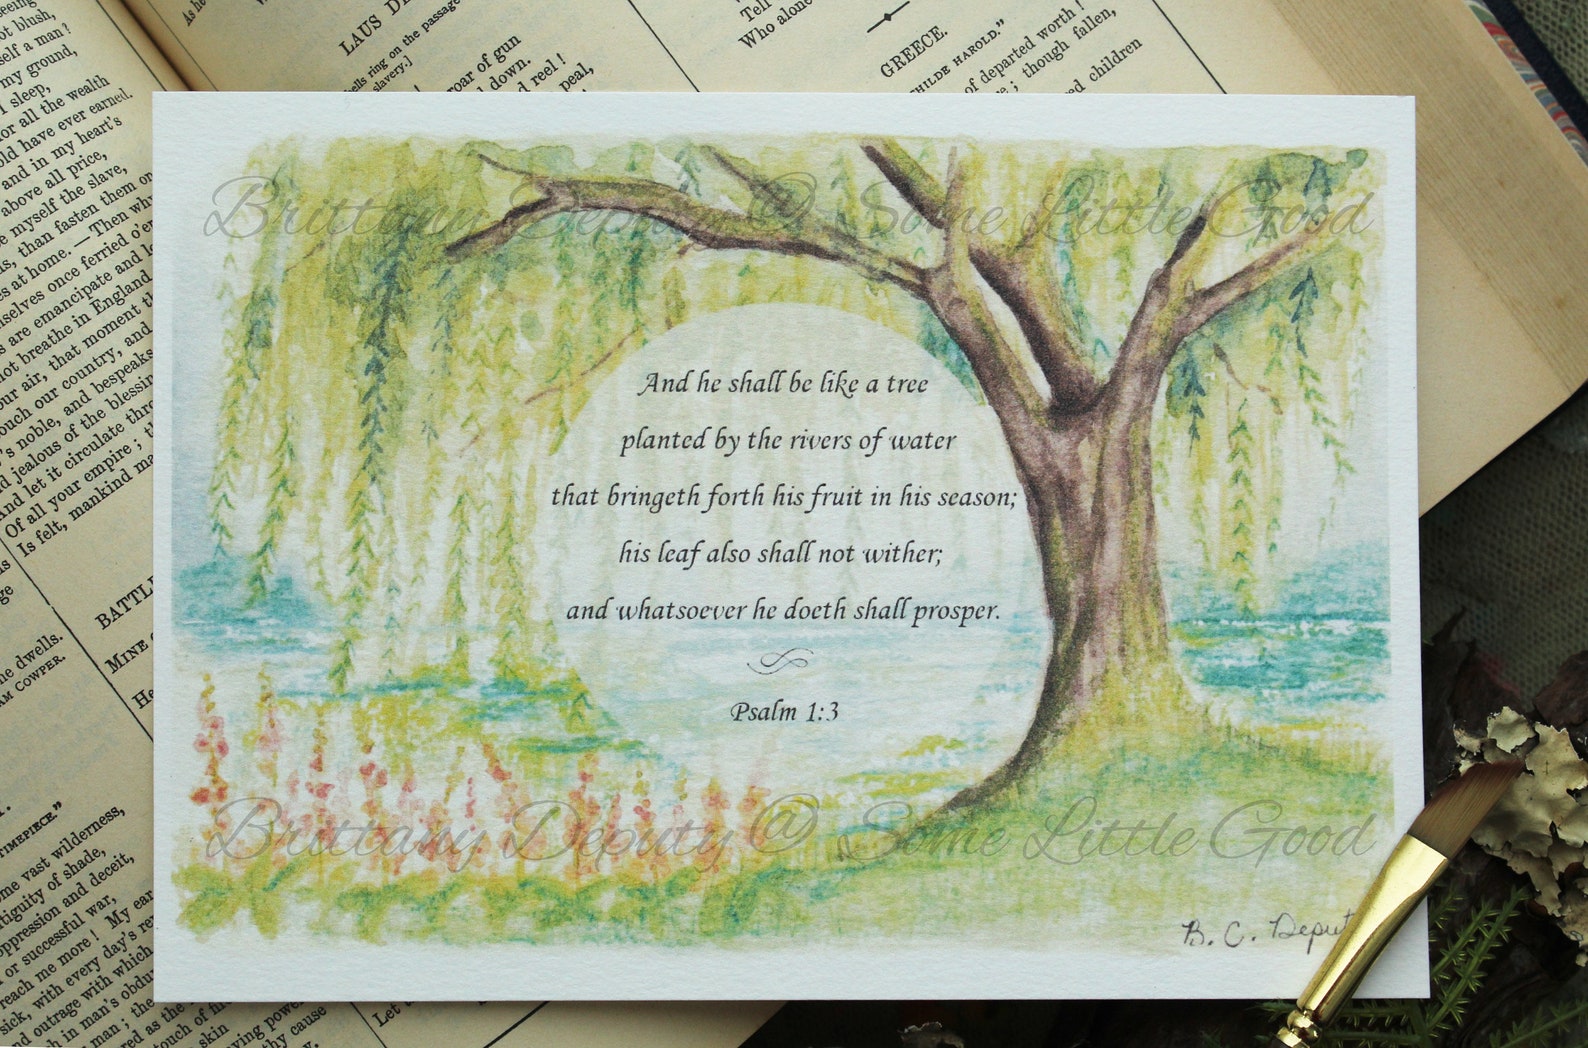 LAUS DE
[bells ring on the passage
slavery.]
roar of gun
down.
and reel!
peal,
Tell
Who alone
GREECE.
"CHILDE HAROLD."
of departed worth!
; though fallen,
children
self a man?
my ground,
I sleep,
or all the wealth
old have ever earned.
and in my heart's
above all price,
myself the slave,
than fasten them on
at home. — Then why
selves once ferried o'er
are emancipate and
not breathe in England
air, that moment
our country, and
noble, and bespeaks
jealous of the blessing
And let it circulate
Of all your empire;
Is felt, mankind
he dwells.
COWPER.
BATTL
MINE
He
TIMEPIECE."
vast wilderness,
of shade,
oppression and deceit,
or successful war,
reach me more! My ear
sick, with every day's
and outrage with which
in man's
man; the
as the
touch of
skin
power
cause
Let
Brittany Deputy @ Some Little Good
And he shall be like a tree
planted by the rivers of water
that bringeth forth his fruit in his season;
his leaf also shall not wither;
and whatsoever he doeth shall prosper.
Psalm 1:3
Brittany Deputy @ Some Little Good
B. C. Deput